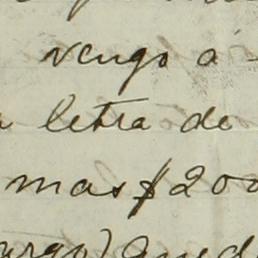 vengo á
letra de
mas $200